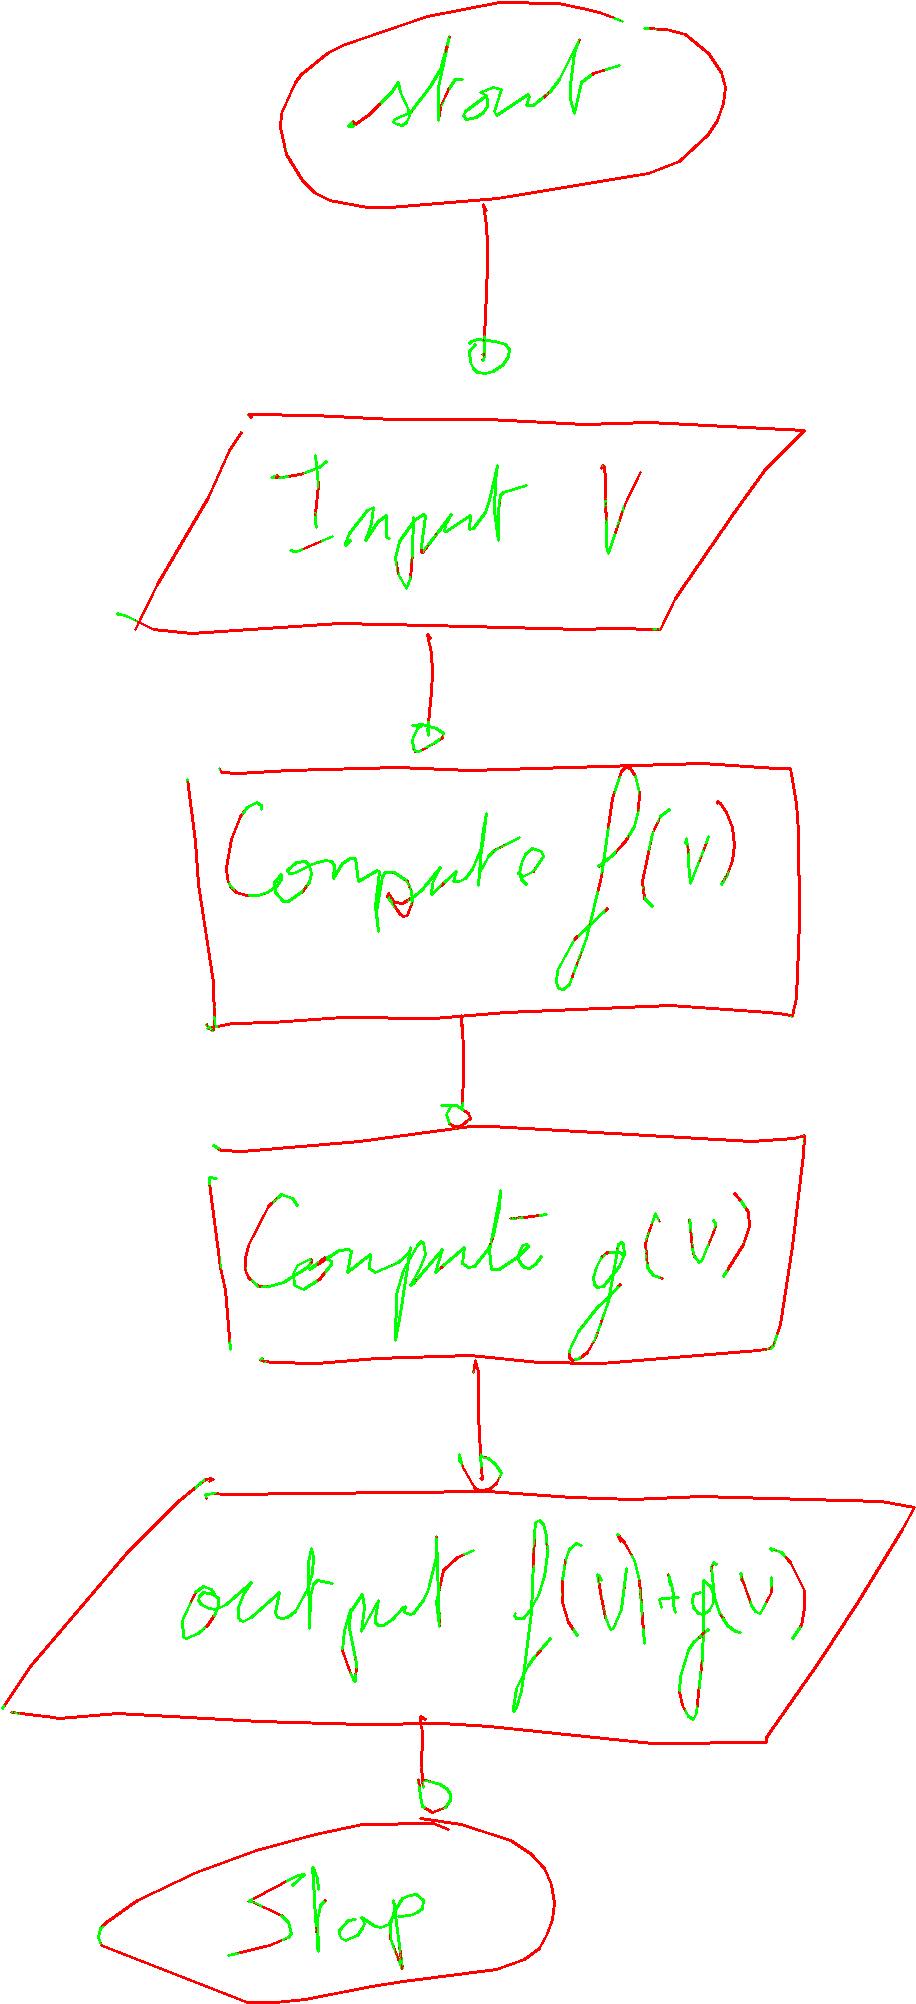 start
Input V
Compute f(v)
Compute g(v)
output f(v)+g(v)
Stop